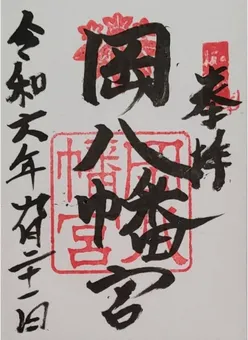 奉拝
岡八幡宮
岡八
幡宮
令和六年 月二十一日